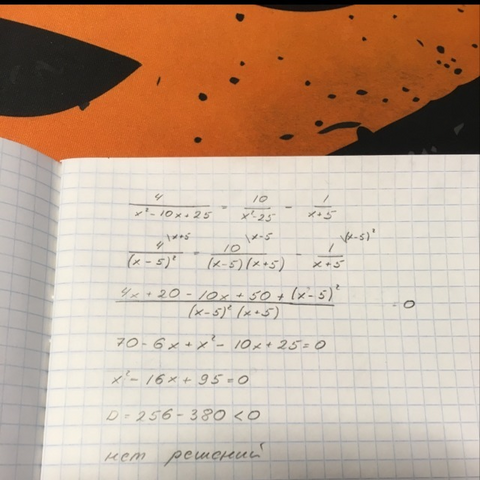 4/(x²-10x+25) = 10/(x²-25) - 1/(x+5)
4\x+5/(x-5)² = 10\x-5/((x-5)(x+5)) - 1\(x-5)²/(x+5)
(4x+20-10x+50+(x-5)²)/((x-5)²(x+5)) = 0
70-6x+x²-10x+25=0
x²-16x+95=0
D=256-380<0
нет решений